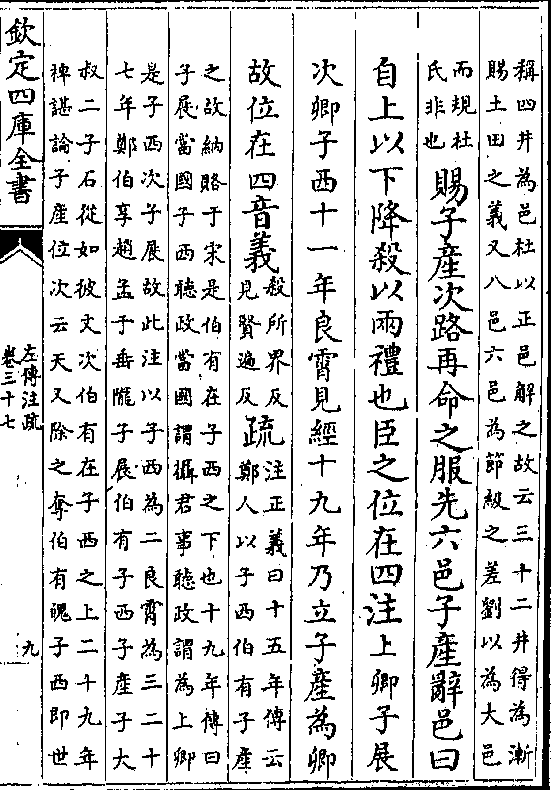 稱四井為邑杜以正邑解之故云三十二井得為漸
賜土田之義又八邑六邑為節級之差劉以為大邑
而規杜
氏非也
賜子產次路再命之服先六邑子產辭邑曰
自上以下降殺以兩禮也臣之位在四注上卿子展
次卿子西十一年良霄見經十九年乃立子產為卿
故位在四音義
殺所界反
見賢遍反
疏
注正義曰十五年傳云
鄭人以子西伯有子產
之故納賂于宋是伯有在子西之下也十九年傳曰
子展當國子西聽政當國謂攝君事聽政謂為上卿
是子西次子展故此注以子西為二良霄為三二十
七年鄭伯享趙孟于垂隴子展伯有子西子產子大
叔二子石從如彼文次伯有在子西之上二十九年
裨諶論子產位次云天又除之奪伯有魄子西即世
欽定四庫全書
左傳注疏
卷三十七
九